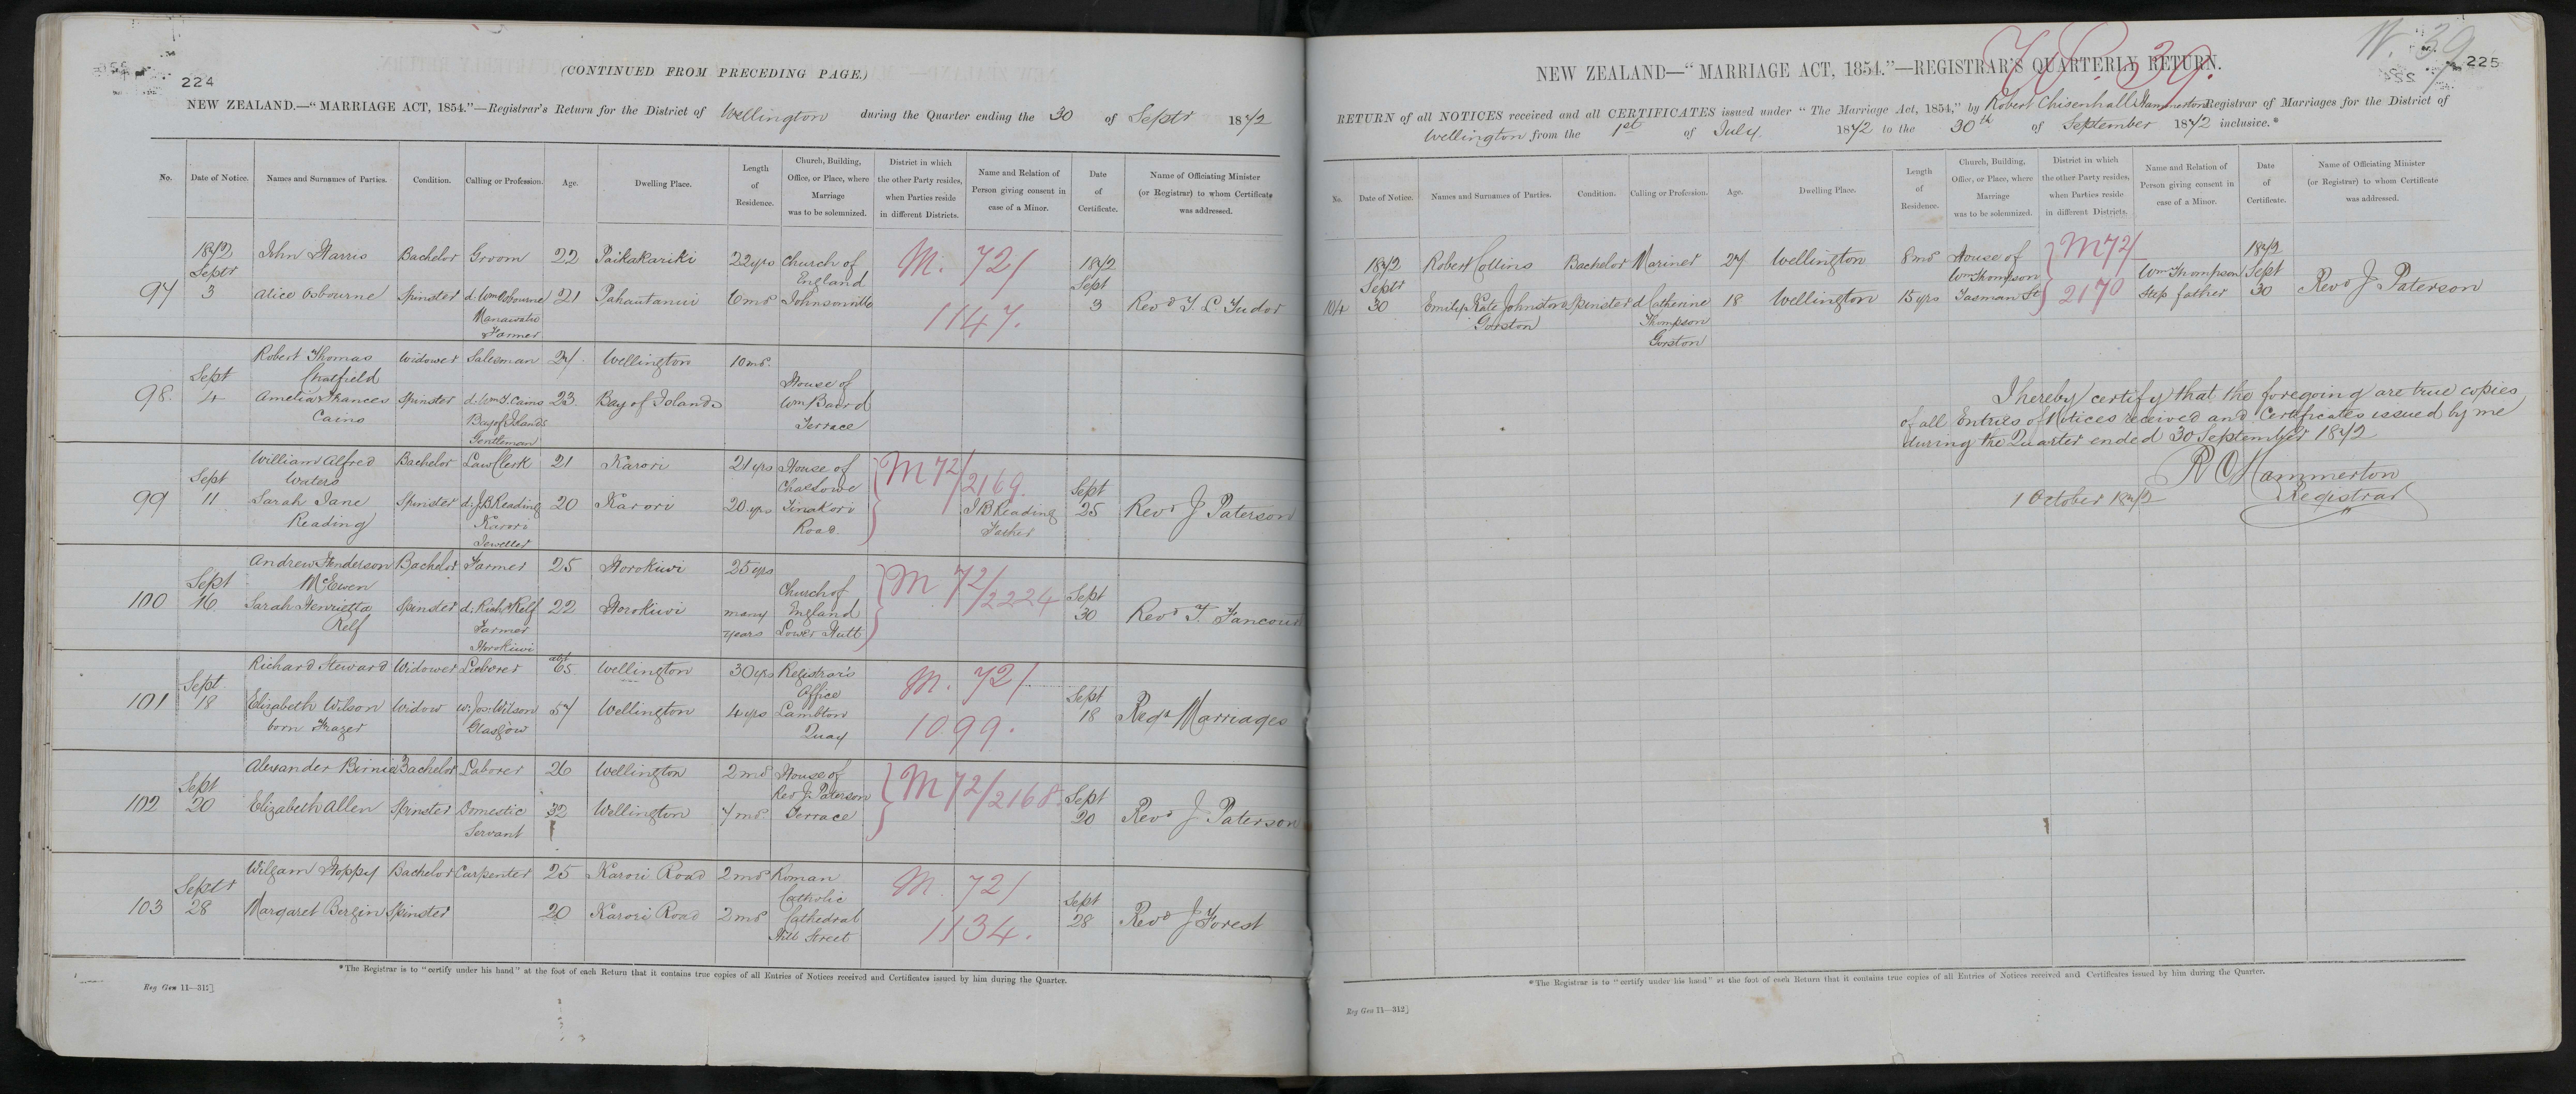 224
(CONTINUED FROM PRECEDING PAGE.)
NEW ZEALAND.—"MARRIAGE ACT, 1854."—Registrar's Return for the District of Wellington during the Quarter ending the 30 of Septr 1872
No. Date of Notice. Names and Surnames of Parties. Condition. Calling or Profession. Age. Dwelling Place. Length of Residence. Church, Building, Office, or Place, where Marriage was to be solemnized. District in which the other Party resides, when Parties reside in different Districts. Name and Relation of Person giving consent in case of a Minor. Date of Certificate. Name of Officiating Minister (or Registrar) to whom Certificate was addressed.
1872 John Harris Bachelor Groom 22 Paikakariki 22 yrs Church of England M. 72/ 1872
97 Septr 3 Alice Osbourne Spinster d. Wm Osbourne Manawatu Farmer 21 Pahautanui 6 mos Johnsonville 1147. Sept 3 Revd T. L. Tudor
Robert Thomas Chatfield Widower Salesman 27 Wellington 10 mos.
98. Sept 4 Amelia Frances Cains Spinster d. Wm T. Cains Bay of Islands Gentleman 23 Bay of Islands House of Wm Baird Terrace
William Alfred Waters Bachelor Law Clerk 21 Karori 21 yrs House of M 72/2169
99 Sept 11 Sarah Jane Reading Spinster d. J B Reading Karori Jeweller 20 Karori 20 yrs Chas Lowe Tinakori Road J B Reading Father Sept 25 Revd J Paterson
Andrew Henderson McEwen Bachelor Farmer 25 Horokiwi 25 yrs M 72/2224
100 Sept 16 Sarah Henrietta Relf Spinster d. Richd Relf Farmer Horokiwi 22 Horokiwi many years Church of England Lower Hutt Sept 30 Revd T. Fancourt
Richard Steward Widower Laborer abt 65 Wellington 30 yrs Registrar's Office M. 72/
101 Sept. 18 Elizabeth Wilson born Frazer Widow w. Jos. Wilson Glasgow 57 Wellington 4 yrs Lambton Quay 1099. Sept 18 Regr Marriages
Alexander Birnie Bachelor Laborer 26 Wellington 2 mos House of M 72/2168
102 Sept 20 Elizabeth Allen Spinster Domestic Servant 32 Wellington 7 mos Rev J. Paterson Terrace Sept 20 Revd J Paterson
William Hoppy Bachelor Carpenter 25 Karori Road 2 mos Roman Catholic M. 72/
103 Septr 28 Margaret Bergin Spinster 20 Karori Road 2 mos Cathedral Hill Street 1134. Sept 28 Revd J Forest
*The Registrar is to "certify under his hand" at the foot of each Return that it contains true copies of all Entries of Notices received and Certificates issued by him during the Quarter.
Reg Gen 11—312]
225
NEW ZEALAND—"MARRIAGE ACT, 1854."—REGISTRAR'S QUARTERLY RETURN.
RETURN of all NOTICES received and all CERTIFICATES issued under "The Marriage Act, 1854," by Robert Chisenhall Hammerton Registrar of Marriages for the District of
Wellington from the 1st of July 1872 to the 30th of September 1872 inclusive.*
No. Date of Notice. Names and Surnames of Parties. Condition. Calling or Profession. Age. Dwelling Place. Length of Residence. Church, Building, Office, or Place, where Marriage was to be solemnized. District in which the other Party resides, when Parties reside in different Districts. Name and Relation of Person giving consent in case of a Minor. Date of Certificate. Name of Officiating Minister (or Registrar) to whom Certificate was addressed.
1872 Robert Collins Bachelor Mariner 27 Wellington 8 mos House of Wm Thompson M 72/ 1872
104 Septr 30 Emily Kate Johnstone Gorston Spinster d. Catherine Thompson Gorston 18 Wellington 15 yrs Tasman St 2170 Wm Thompson Step father Sept 30 Revd J Paterson
I hereby certify that the foregoing are true copies
of all Entries of Notices received and Certificates issued by me
during the Quarter ended 30 September 1872
R C Hammerton
Registrar
1 October 1872
*The Registrar is to "certify under his hand" at the foot of each Return that it contains true copies of all Entries of Notices received and Certificates issued by him during the Quarter.
Reg Gen 11—312]